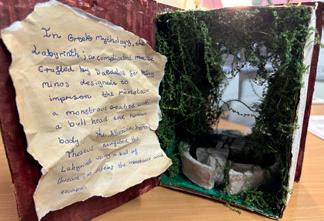 In Greek mythology, the
Labyrinth is a complicated maze
Crafted by Daedalus for King
minos designed to
imprison the minotaur
a monstrous creature with
a bull head and human
body. The Athenian hero
Theseus navigated the
Labyrinth using a ball of
thread to defeat the minotaur and
escape.